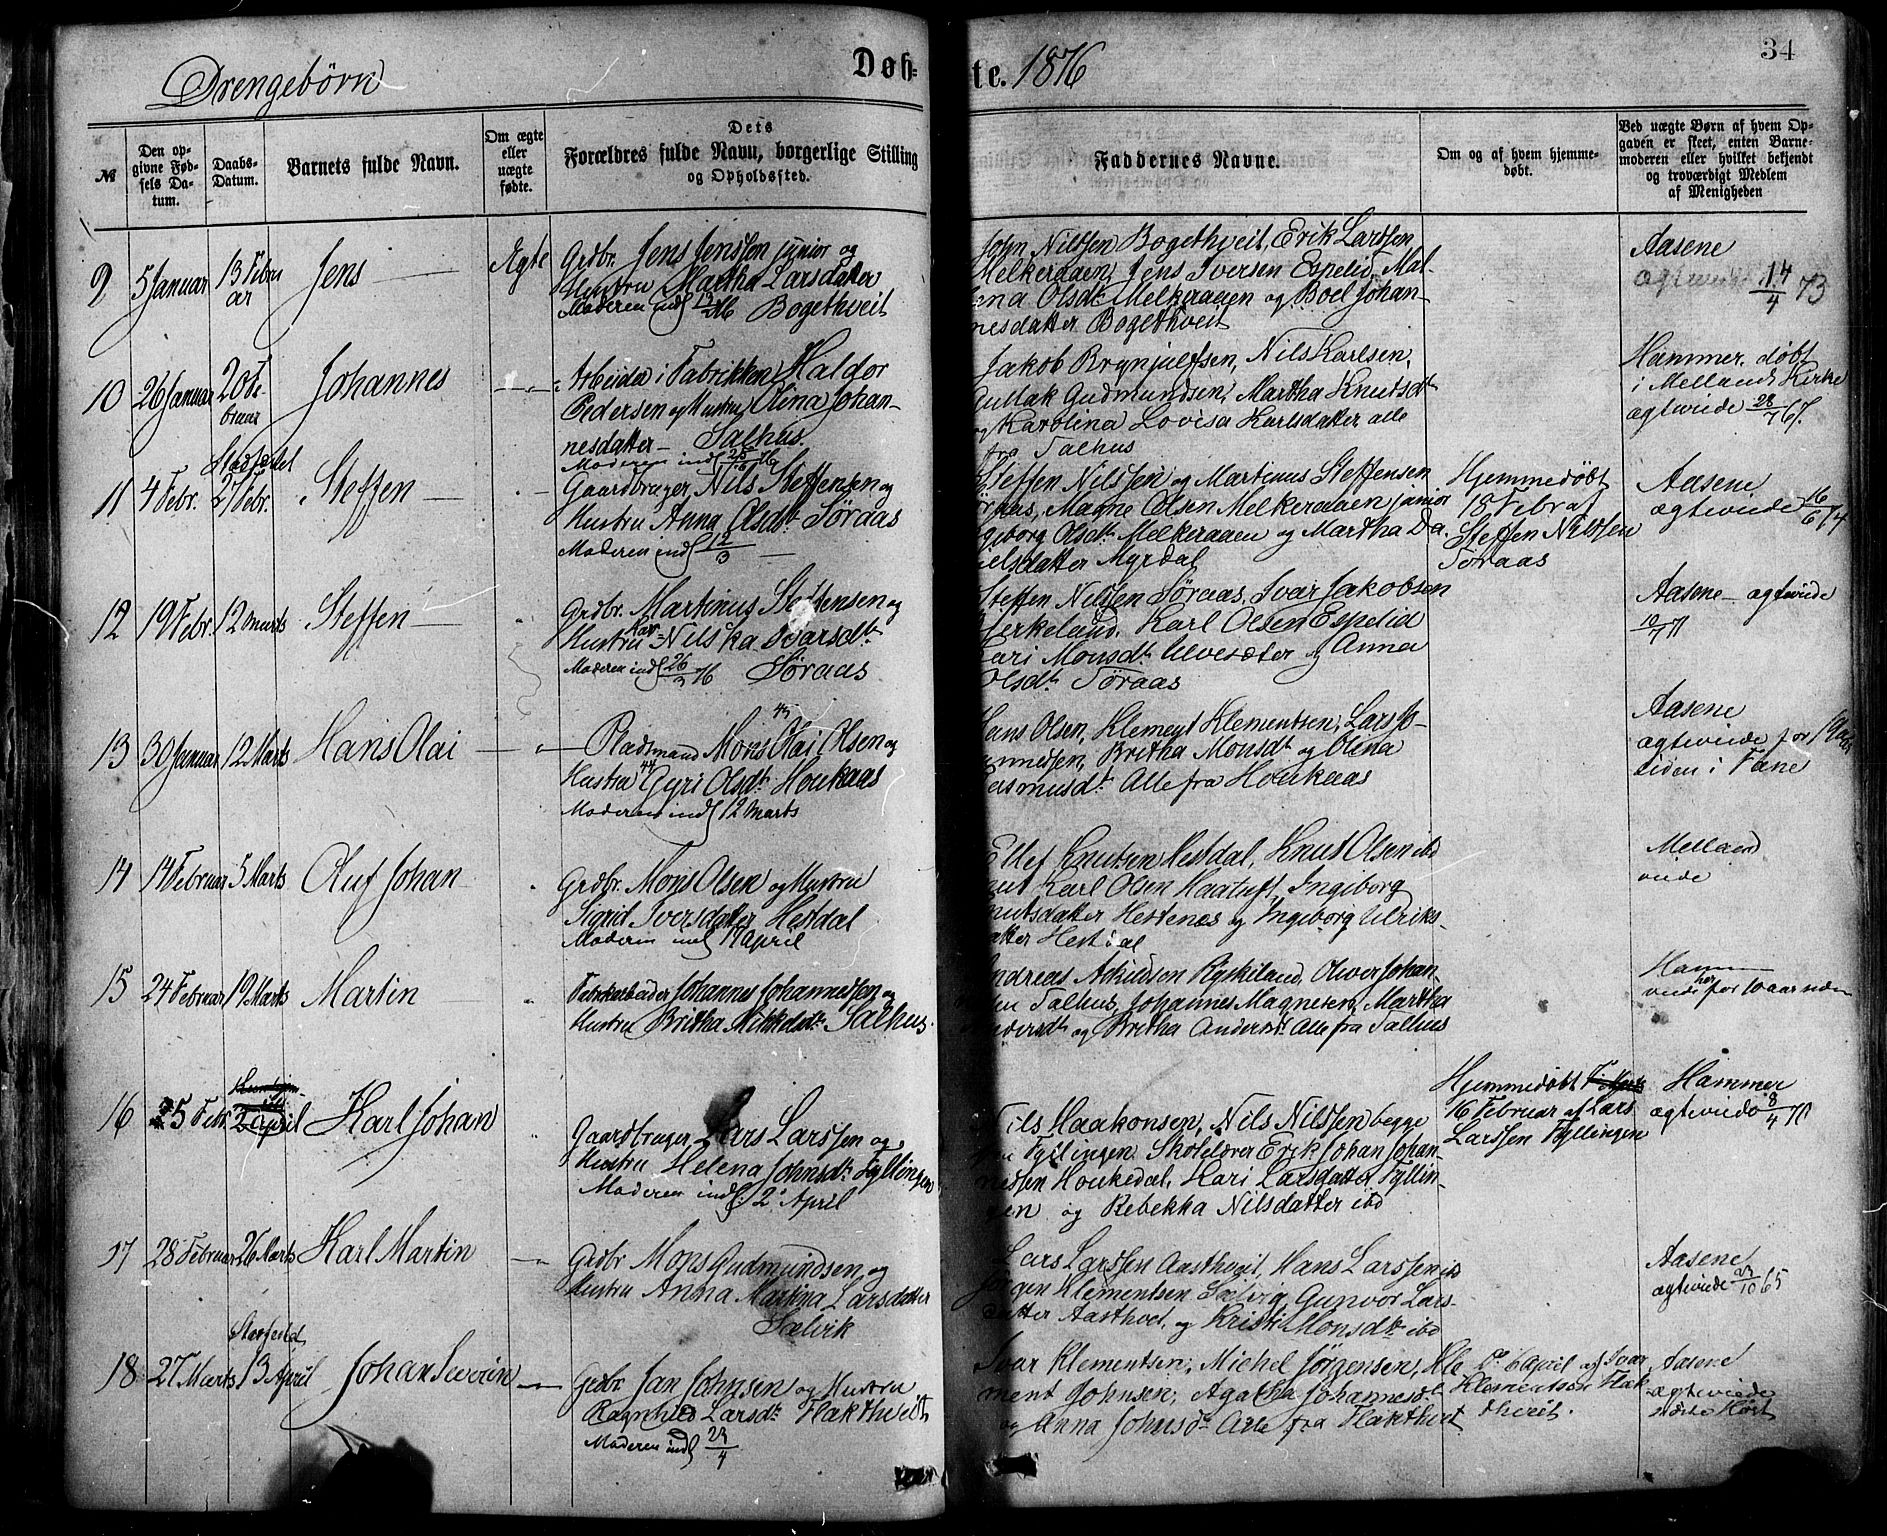 Drengebörn
Døb-
te. 1876
34
№
Den op-
givne Fød-
sels Da-
tum.
Daabs-
Datum.
Barnets fulde Navn.
Om ægte
eller
uægte
fødte.
Dets
Forældres fulde Navn, borgerlige Stilling
og Opholdssted.
Faddernes Navne.
Om og af hvem hjemme-
døbt.
Ved uægte Børn af hvem Op-
gaven er skeet, enten Barne-
moderen eller hvilket bekjendt
og troværdigt Medlem
af Menigheden
9 5 Januar 13 Febru
ar
Jens
Ægte
Grdbr. Jens Jenssen junior og
Hustru Martha Larsdatter
Moderen indl Bogethveit
John Nilssen Bogethveit, Erik Larssen
Melkeraaen, Jens Iversen Espelid, Mal-
ena Olsdt. Melkeraaen og Boel Johan-
nesdatter Bogethveit
Aasene
ægtevied 14/4 73
10 26 Januar 20 Fe-
bruar
Johannes
Arbeider i Fabrikken Haldor
Pedersen og Hustru Olina Johan-
nesdatter - Salhus.
Moderen indl
Jakob Brynjulfsen, Nils Karlsen,
Gullak Gudmundsen, Martha Knutsdt
og Karolina Lovisa Karlsdatter alle
fra Salhus
Hammer, døbt
i Mellands Kirke
ægteviede 28/7 67.
11 4 Febr. Stadfæstet
27 Febr.
Steffen
Gaardbruger Nils Steffensen og
Hustru Anna Olsdt. Söraas
Moderen indl 12/3
Steffen Nilssen og Martinus Steffensen
Söraas, Magne Olsen Melkeraaen junior
Ingeborg Olsdt. Melkeraaen og Martha Da-
nielsdatter Myrdal
Hjemmedøbt
18 Febr af
Steffen Nilssen
Söraas
Aasene
ægteviede 16/6 74
12 19 Febr. 12 Marts
Steffen
Grdbr. Martinus Steffensen og
Hustru Nilska Ivarsdt.
Moderen indl 26/3 76 Søraas
Steffen Nilssen Søraas, Ivar Jakobsen
Birkeland, Karl Olsen Espelid
Kari Monsdt. Ulvesæter og Anna
Olsdt. Söraas
Aasene - ægteviede
10/7 71
13 30 Januar 12 Marts
Hans Olai
Pladsmand Mons Olai Olsen og
Hustru 44 Gyri Olsdt. Houkaas
Moderen indl 12 Marts
Hans Olsen, Klemeyt Klementsen, Lars Jo-
hannessen, Britha Monsdt. og Olina
Rasmusdt. Alle fra Houkaas
Aasene
ægteviede for
tiden i Fane
14 14 Februar 5 Marts
Oluf Johan
Grdbr. Mons Olsen og Hustru
Sigrid Iversdatter Hestdal
Moderen indl 17 April
Ellef Knutsen Hestdal, Knut Olsen ibd
Karl Olsen Haatuft, Ingiborg
Knutsdatter Hestenes og Ingiborg Ulriks-
datter Hestdal
Melland
viede
15 24 Februar 19 Marts
Martin
Fabrikarbeider Johannes Johannessen og
Hustru Britha Mikkelsdt. Salhus.
Andreas Askildsen Ryskiland, Oliver Johan-
sen Salhus, Johannes Magnesen, Martha
Andersdt og Britha Andersdt Alle fra Salhus
Hammer
viede for 10 aar siden
16 5 Febr. 2 April
Karl Johan
Gaardbruger Lars Larssen og
Hustru Helena Johnsdt. Fyllingen
Moderen indl: 2 April
Nils Haakonsen, Nils Nilssen begge
fra Fyllingen, Skolelærer Erik Johan Johan-
nessen Houkedal, Kari Larsdatter Fyllin-
gen og Rebekka Nilsdatter ibd
Hjemmedøbt
16 Februar af Lars
Larssen Fyllingen
Hammer
ægteviede 8/4 71
17 28 Februar 26 Marts
Karl Martin
Grdbr. Mons Gudmundsen og
Hustru Anna Martina Larsdatter
Sælvik
Lars Larssen Aasthveit, Hans Larssen ibd
Jørgen Klementsen Sælvig Gunvor Lars-
datter Aasthvet, og Kristi Monsdt. ibd
Aasene
ægteviede 23/10 65
18 27 Marts Stadfæstet
13 April
Johan Severin
Grdbr. Jan Johnsen og Hustru
Ragnhild Larsdt. Flakthveit
Moderen indl 23/4
Ivar Klementsen, Michel Jörgensen, Kle-
ment Johnsen, Agatha Johannesdt.
og Anna Johnsdt. Alle fra Flakthveit
Do 6 April af Ivar
Klementsen Flak-
thveit.
Aasene
ægteviede
sidste Høst